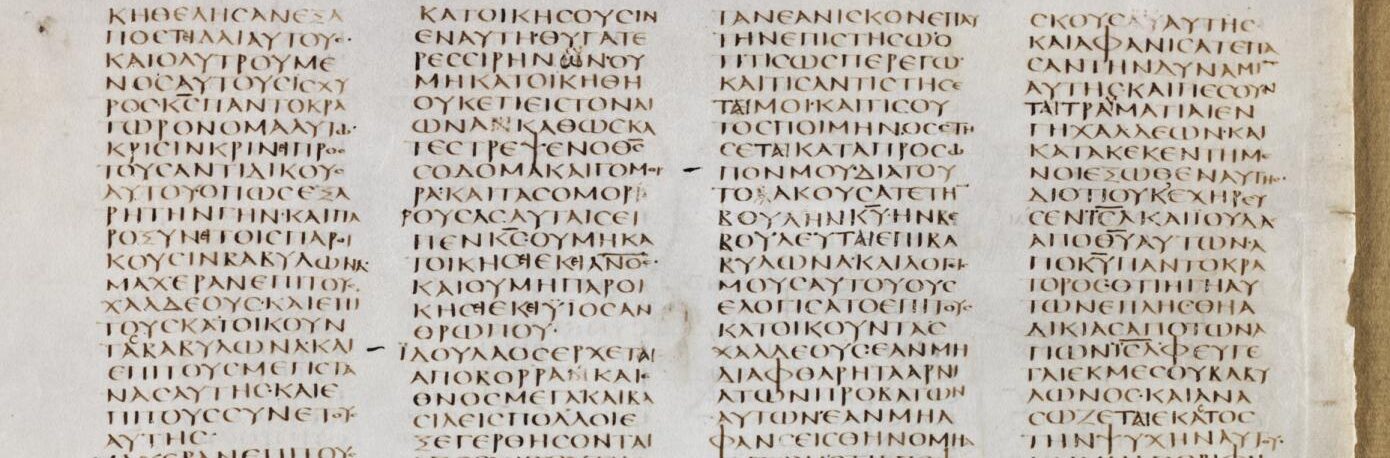 ΚΗΘΕΛΗCΑΝΕΞΑ
ΠΟCΤΕΙΛΑΙΑΥΤΟΥC
ΚΑΙΟΛΥΤΡΟΥΜΕ
ΝΟCΑΥΤΟΥCΙCΧΥ
ΡΟCΚCΠΑΝΤΟΚΡΑ
ΤΩΡΟΝΟΜΑΑΥΤΩ
ΚΡΙCΙΝΚΡΙΝΕΙΠΡΟC
ΤΟΥCΑΝΤΙΔΙΚΟΥC
ΑΥΤΟΥΟΠΩCΕΞΑ
ΡΗΤΗΝΓΗΝ·ΚΑΙΠΑ
ΡΟΞΥΝΕΙΤΟΙCΠΑΡΟΙ
ΚΟΥCΙΝΒΑΒΥΛΩΝΑ
ΜΑΧΕΡΑΝΕΠΙΤΟΥC
ΧΑΛΔΕΟΥC·ΚΑΙΕΠΙ
ΤΟΥCΚΑΤΟΙΚΟΥΝ
ΤΑCΒΑΒΥΛΩΝΑ·ΚΑΙ
ΕΠΙΤΟΥCΜΕΓΙCΤΑ
ΝΑCΑΥΤΗC·ΚΑΙΕ
ΠΙΤΟΥCCΥΝΕΤΟΥC
ΑΥΤΗC·
ΜΑΧΕΡΑΝΕΠΙΤΟΥC
ΚΑΤΟΙΚΗCΟΥCΙΝ
ΕΝΑΥΤΗ·ΘΥΓΑΤΕ
ΡΕCCΙΡΗΝΩΝ·ΟΥ
ΜΗΚΑΤΟΙΚΗΘΗ
ΟΥΚΕΤΙΕΙCΤΟΝΑΙ
ΩΝΑΚΑΘΩCΚΑ
ΤΕCΤΡΕΨΕΝΟΘC
CΟΔΟΜΑΚΑΙΓΟΜΟΡ
ΡΑ·ΚΑΙΤΑCΟΜΟΡΟΥ
CΑCΑΥΤΑΙCΕΙ
ΠΕΝΚC·ΟΥΜΗΚΑ
ΤΟΙΚΗCΕΙΕΚΕΙΑΝΟC·
ΚΑΙΟΥΜΗΠΑΡΟΙ
ΚΗCΕΙΕΚΕΙΥΙΟCΑΝ
ΘΡΩΠΟΥ·
ΪΔΟΥΛΑΟCΕΡΧΕΤΑΙ
ΑΠΟΒΟΡΡΑΚΑΙΕ
ΘΝΟCΜΕΓΑΚΑΙΒΑ
CΙΛΕΙCΠΟΛΛΟΙΕ
ΞΕΓΕΡΘΗCΟΝΤΑΙ
ΠΑΝΕΑΝΙCΚΟΝΕΠΑΥ
ΤΗΝΕΠΙCΤΗCΩΟ
ΤΙΤΙCΩCΠΕΡΕΓΩ·
ΚΑΙΤΙCΑΝΤΙCΤΗCΕ
ΤΑΙΜΟΙ·ΚΑΙΤΙCΟΥ
ΤΟCΠΟΙΜΗΝΟCCΤΗ
CΕΤΑΙΚΑΤΑΠΡΟCΩ
ΠΟΝΜΟΥ·ΔΙΑΤΟΥ
ΤΟΑΚΟΥCΑΤΕΤΗΝ
ΒΟΥΛΗΝΚΥ·ΗΝΒΕ
ΒΟΥΛΕΥΤΑΙΕΠΙΒΑ
ΒΥΛΩΝΑ·ΚΑΙΛΟΓΙC
ΜΟΥCΑΥΤΟΥΟΥC
ΕΛΟΓΙCΑΤΟΕΠΙΤΟΥC
ΚΑΤΟΙΚΟΥΝΤΑC
ΧΑΛΔΕΟΥC·ΕΑΝΜΗ
ΔΙΑΦΘΑΡΗΤΑΑΡΝΙ
ΑΤΩΝΠΡΟΒΑΤΩΝ
ΑΥΤΩΝ·ΕΑΝΜΗΑ
ΦΑΝCΕΙCΘΗΝΟΜΗ
CΚΟΥCΑΥΤΗC
ΚΑΙΑΦΑΝΙCΑΤΕΠΑ
CΑΝΤΗΝΔΥΝΑΜΙΝ
ΑΥΤΗC·ΚΑΙΠΕCΟΥΝ
ΤΑΙΤΡΑΥΜΑΤΙΑΙΕΝ
ΓΗΧΑΛΔΕΩΝ·ΚΑΙ
ΚΑΤΑΚΕΚΕΝΤΗΜΕ
ΝΟΙΕΞΩΘΕΝΑΥΤΗC·
ΔΙΟΤΙΟΥΚΕΧΗΡΕΥ
CΕΝΙCΛΚΑΙΪΟΥΔΑ
ΑΠΟΘΥΑΥΤΩΝ·Α
ΠΟΚΥΠΑΝΤΟΚΡΑ
ΤΟΡΟC·ΟΤΙΗΓΗΑΥ
ΤΩΝΕΠΛΗCΘΗΑ
ΔΙΚΙΑCΑΠΟΤΩΝΑ
ΓΙΩΝΙCΛΦΕΥΓΕ
ΤΑΙΕΚΜΕCΟΥΒΑΒΥ
ΛΩΝΟC·ΚΑΙΑΝΑ
CΩΖΕΤΑΙΕΚΑCΤΟC
ΤΗΝΨΥΧΗΝΑΥΤΟΥ·